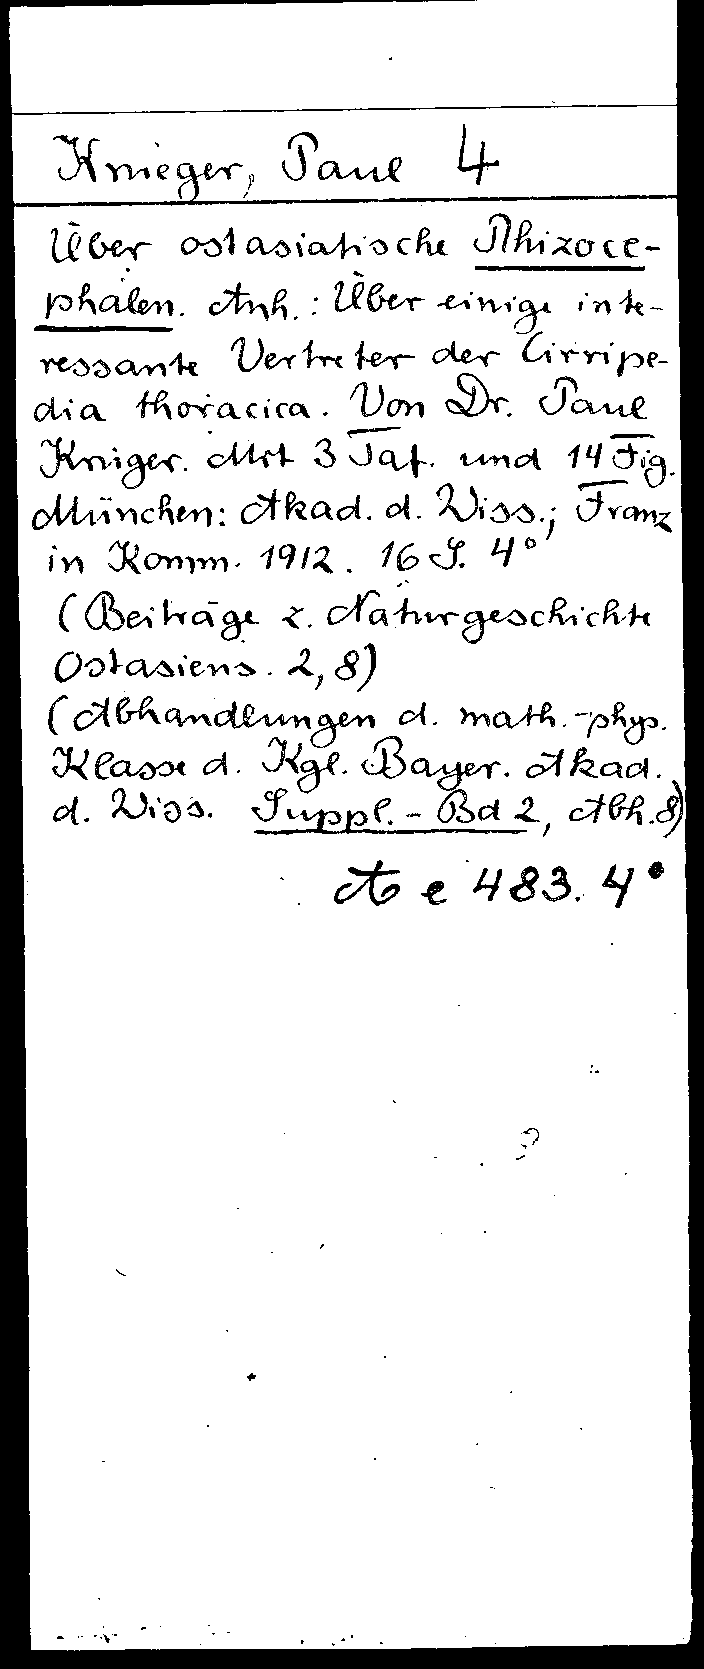 Krueger, Paul 4
Über ostasiatische Rhizoce-
phalen. Anh.: Über einige inte-
ressante Vertreter der Cirripe-
dia thoracica. Von Dr. Paul
Krüger. Mit 3 Taf. und 14 Fig.
München: Akad. d. Wiss.; Franz
in Komm. 1912. 16 S. 4°
(Beiträge z. Naturgeschichte
Ostasiens. 2, 8)
(Abhandlungen d. math.-phys.
Klasse d. Kgl. Bayer. Akad.
d. Wiss. Suppl.-Bd 2, Abh. 8)
A e 483. 4°